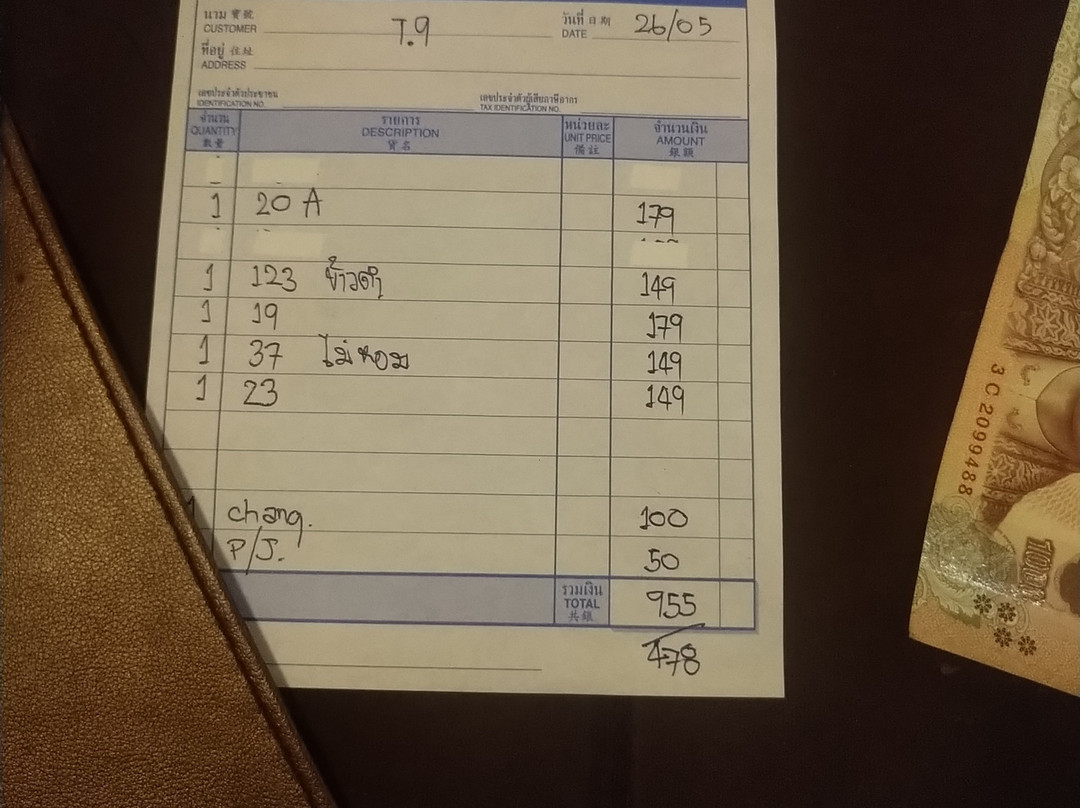 นาม 寶號 วันที่ 日期
CUSTOMER T.9 DATE 26/05
ที่อยู่ 住址
ADDRESS
เลขประจำตัวประชาชน เลขประจำตัวผู้เสียภาษีอากร
IDENTIFICATION NO. TAX IDENTIFICATION NO.
จำนวน รายการ หน่วยละ จำนวนเงิน
QUANTITY DESCRIPTION UNIT PRICE AMOUNT
數量 寶名 備註 銀額
1 20 A 179
1 123 ข้าวดำ 149
1 19 179
1 37 ไม่หอม 149
1 23 149
1 chang. 100
P/J. 50
รวมเงิน
TOTAL 955
共銀
478
3C2099488